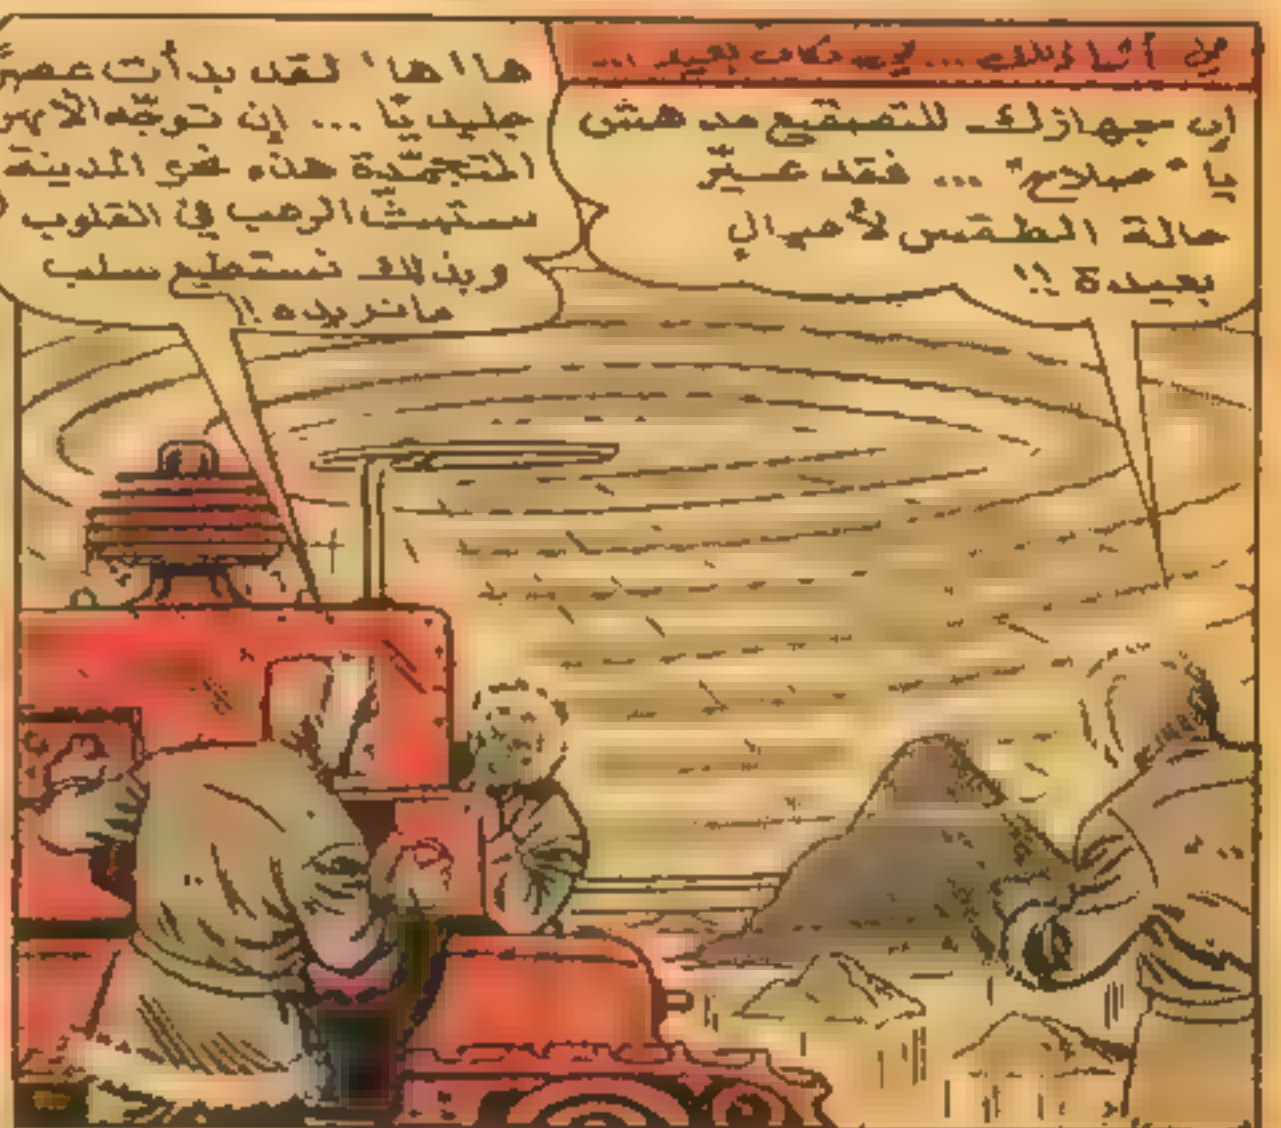 في أثناء ذلك ... في مكان بعيد ...
إن جهازك للتصقيع مدهش
يا "صلاح" ... فقد غيّر
حالة الطقس لأميال
بعيدة !!
هااها ! لقد بدأت عصرً
جليديًا ... إن توجّه
المتجمّدة هذه نحو المدينة
ستبث الرعب في القلوب
وبذلك نستطيع سلب
مانريده !!